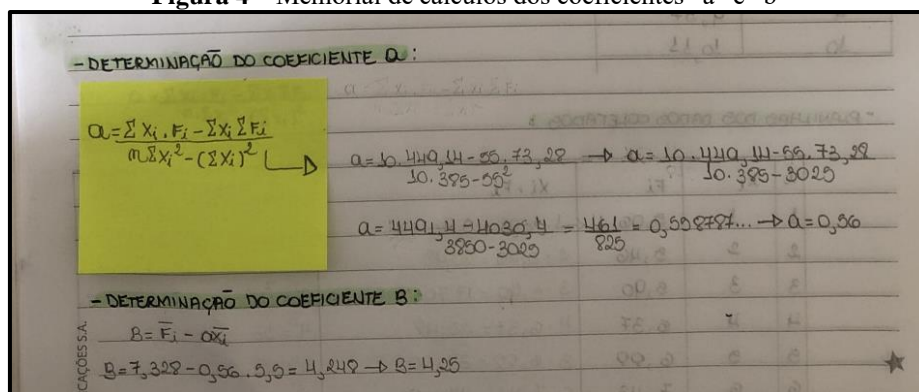 Figura 4 – Memorial de cálculos dos coeficientes "a" e "b"
- DETERMINAÇÃO DO COEFICIENTE a:
a = Σ Xi . Fi - ΣXi ΣFi / nΣXi² - (ΣXi)²
a = 10.449,14 - 55.73,28 / 10.385 - 55² → a = 10.449,14 - 55.73,28 / 10.385 - 3025
a = 4491,4 - 4030,4 / 3850 - 3025 = 461 / 825 = 0,558787... → a = 0,56
- DETERMINAÇÃO DO COEFICIENTE B:
B = F̅i - ax̅i
B = 7,328 - 0,56 . 5,5 = 4,248 → B = 4,25
CAÇÕES S.A.